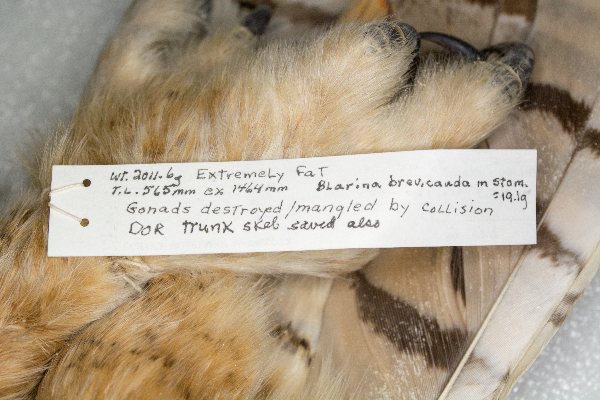 WT. 2011.6g Extremely Fat
T.L. 565mm ex 1464mm Blarina brevicauda in stom.
=19.1g
Gonads destroyed/mangled by collision
DOR Trunk skel saved also